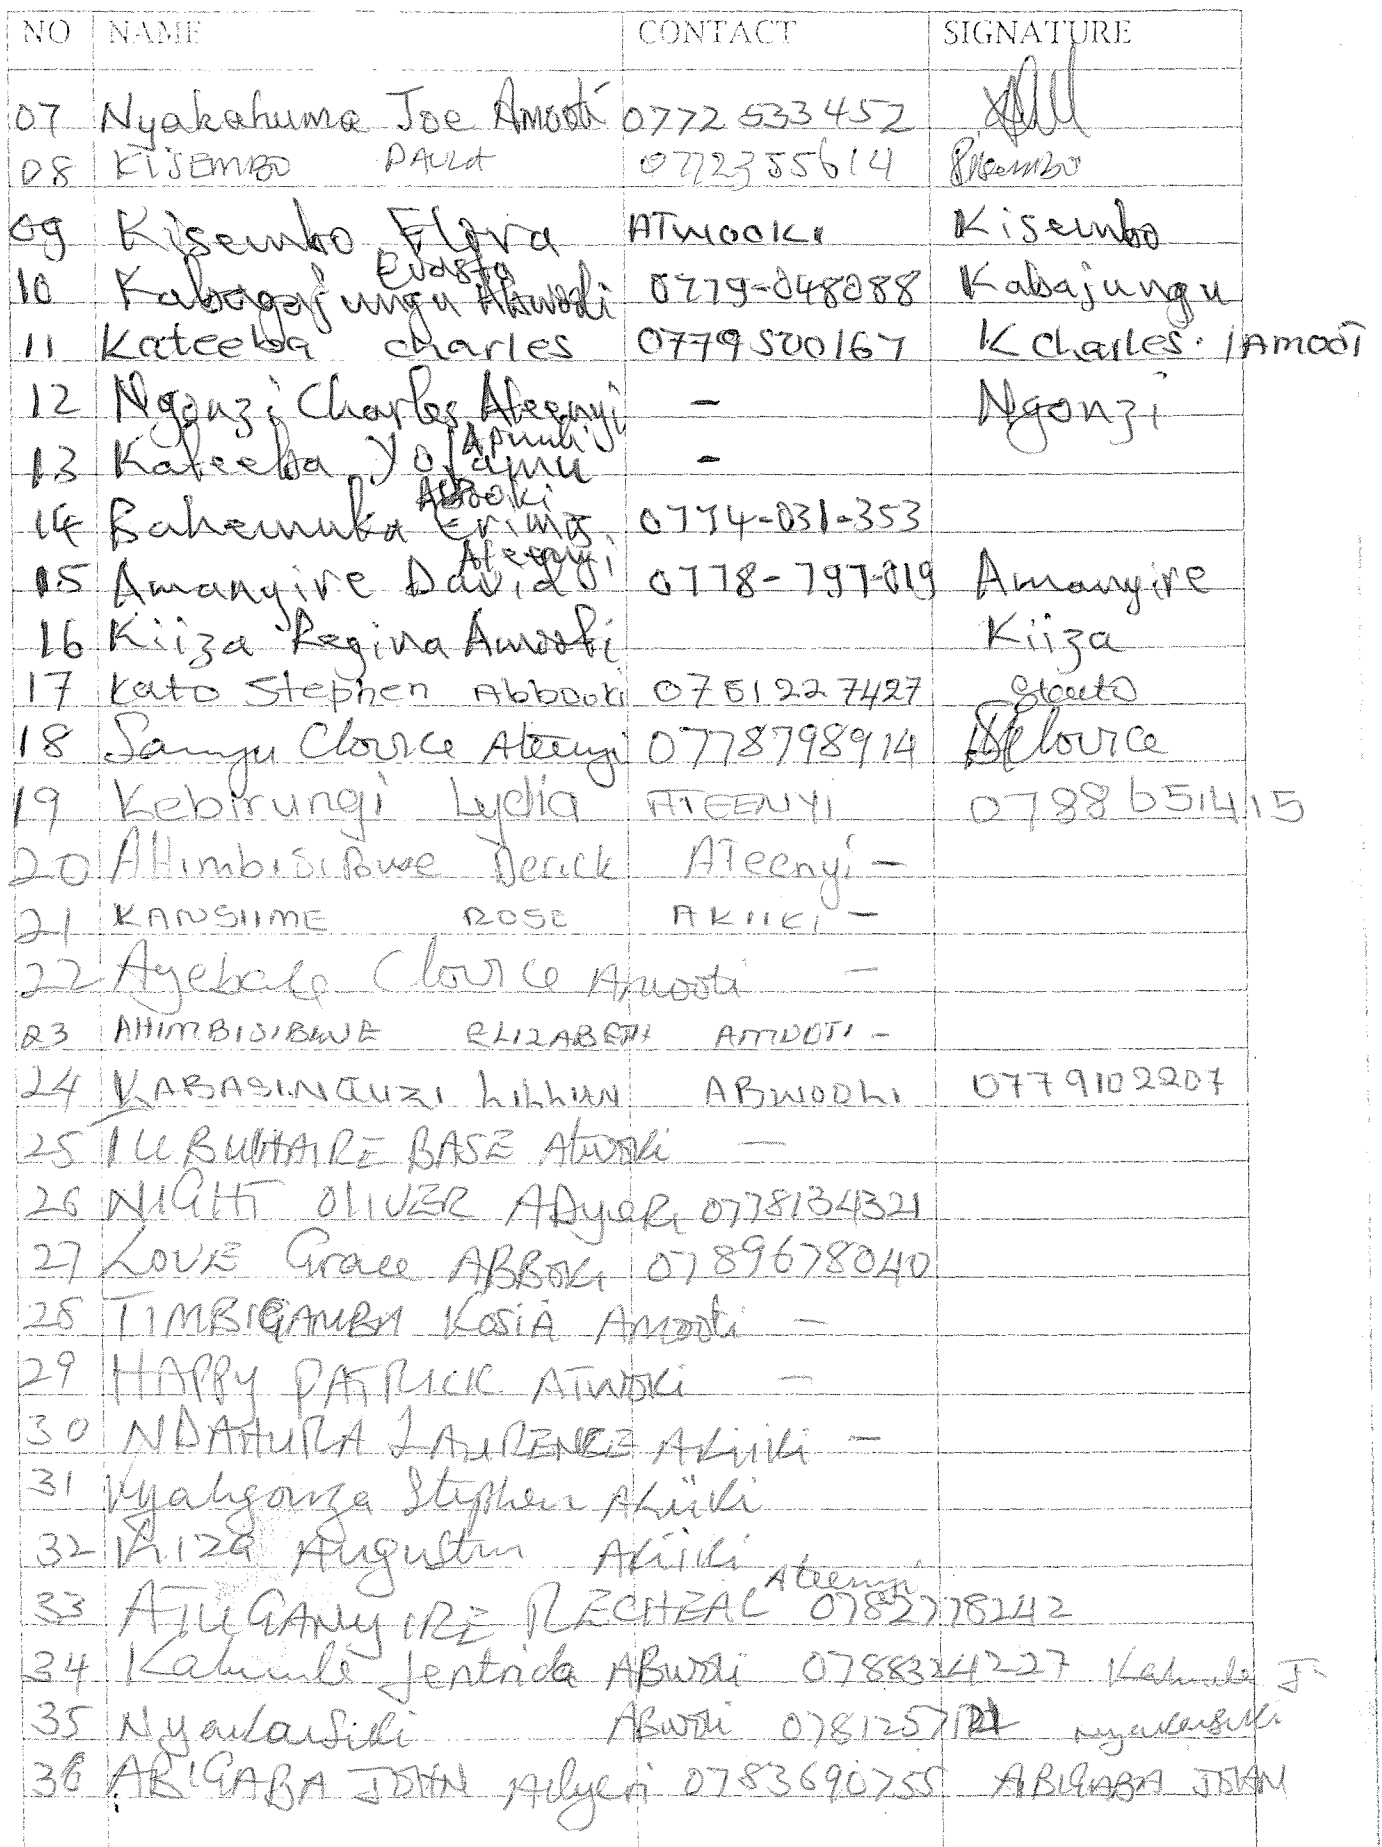 NO NAME CONTACT SIGNATURE
07 Nyakahuma Joe Amooti 0772 533452
08 KISEMBO PAULA 0772355614 PKisembo
09 Kisembo Flora ATWOOKI Kisembo
Evasta
10 Kabagajungu Abwooli 0779-048088 Kabajungu
11 Kateeba charles 0779500167 K Charles. / AMOOTI
12 Ngonzi Charles Ateenyi - Ngonzi
Apuuli
13 Kateeba Yolamu -
Abooki
14 Bahemuka Erima 0774-031-353
Ateenyi
15 Amanyire David 0778-797-019 Amanyire
16 Kiiza Regina Amooti Kiiza
17 Kato Stephen Abbooki 0751227427 SKato
18 Clovice Ateenyi 0778798914 Clovice
19 Kebirungi Lydia ATEENYI 0788651415
20 AHimbisiBwe Derick ATeenyi -
21 KANSIIME ROSE AKIIKI -
22 Ayebale Clovice Amooti -
23 AHIMBISIBWE ELIZABETH AMOOTI -
24 KABASINGUZI LILLIAN ABWOOLI 0779102207
25 TUBUHAIRE BASE Atwoki -
26 NIGHT OLIVER ADyeri 0778134321
27 LOVE Grace ABBoki 0789678040
28 TIMBIGAMBA Kosia Amooti -
29 HAPPY PATRICK ATwoki -
30 NDAHURA LAURENCE AKiiki -
31 Kyahgonza Stephen AKiiki
32 Kiza Augustin AKiiki
Ateenyi
33 ATUGANyIRE RECHEAL 0782778242
34 Jentrida ABwoli 0788324227 J
35 Nyakausiki ABwoli Nyakausiki
36 ABIGABA JOHN Adyeri 0783690755 ABIGABA JOHN